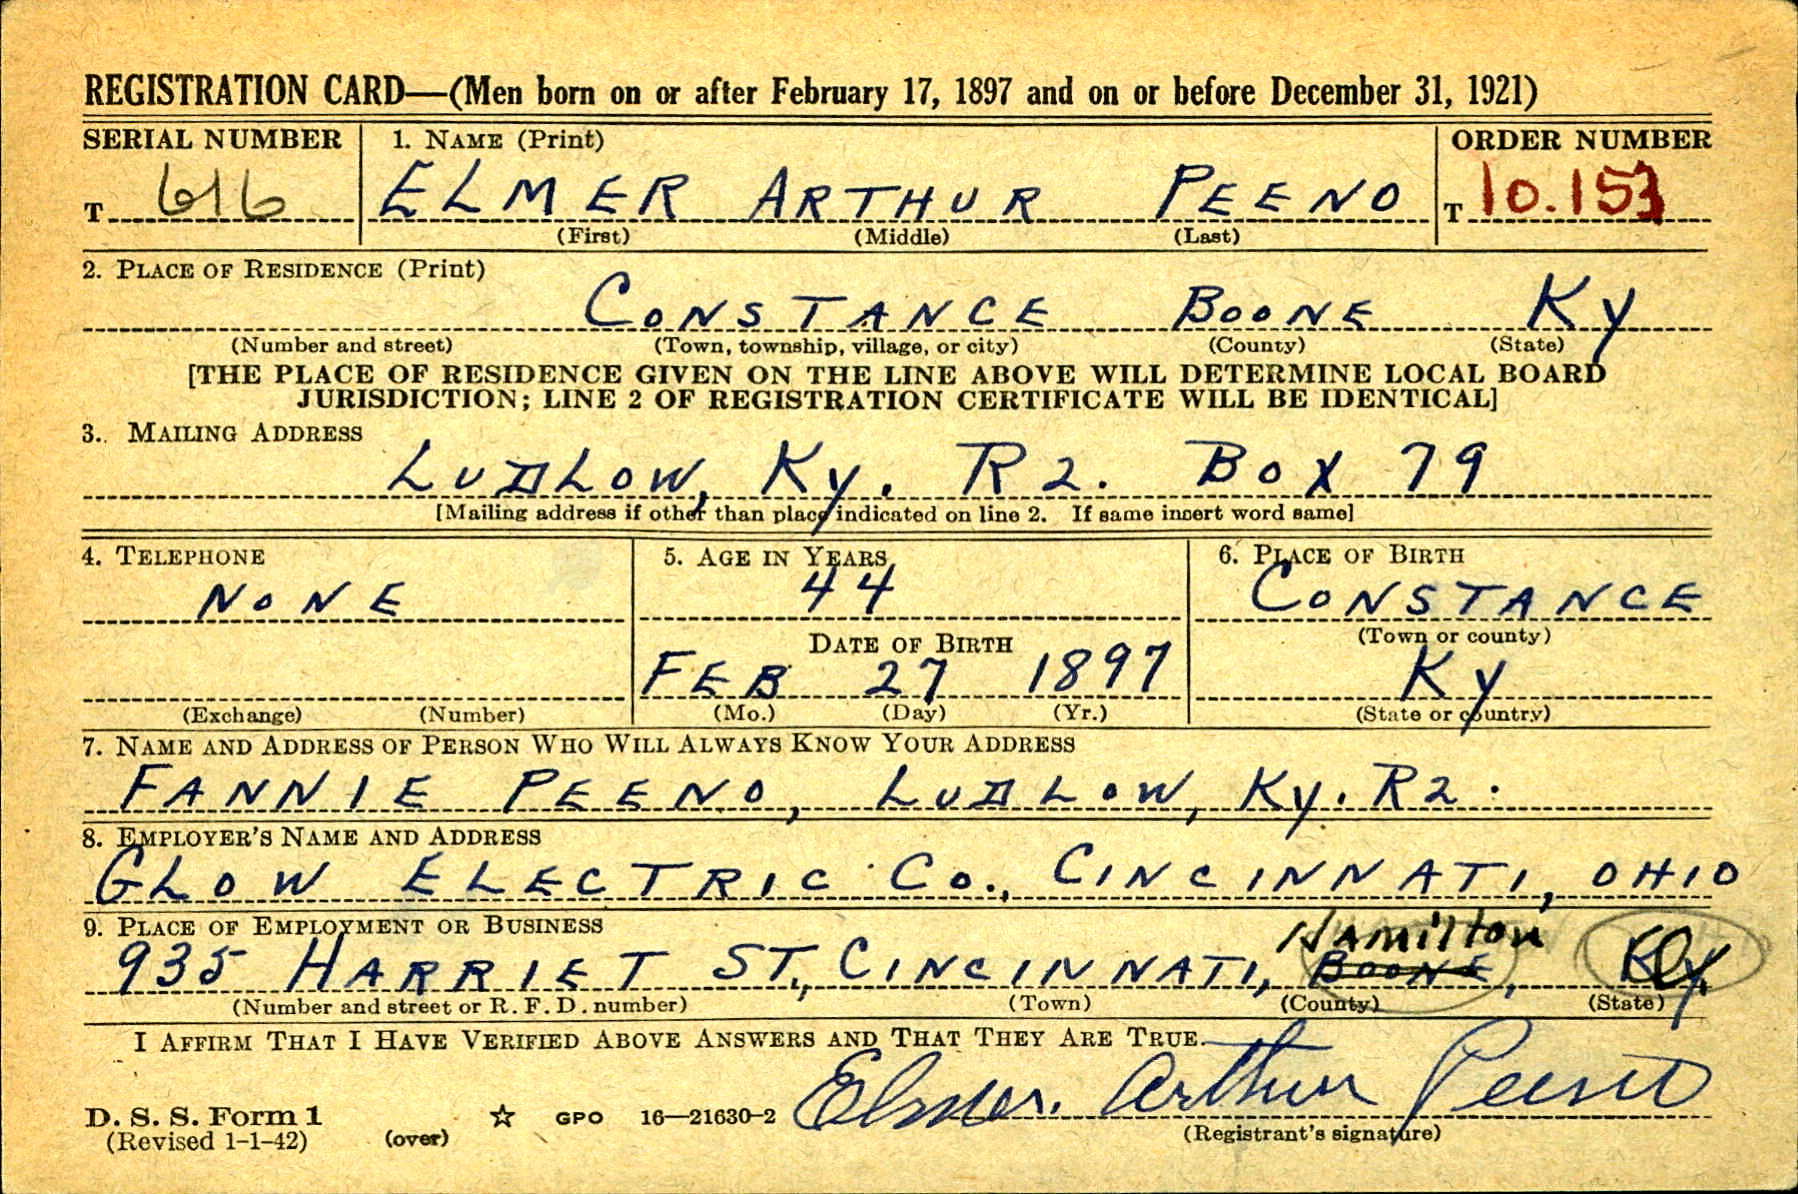 REGISTRATION CARD—(Men born on or after February 17, 1897 and on or before December 31, 1921)
SERIAL NUMBER 1. NAME (Print) ORDER NUMBER
T 616 ELMER ARTHUR PEENO T 10.153
(First) (Middle) (Last)
2. PLACE OF RESIDENCE (Print)
CONSTANCE BOONE Ky
(Number and street) (Town, township, village, or city) (County) (State)
[THE PLACE OF RESIDENCE GIVEN ON THE LINE ABOVE WILL DETERMINE LOCAL BOARD
JURISDICTION; LINE 2 OF REGISTRATION CERTIFICATE WILL BE IDENTICAL]
3. MAILING ADDRESS
LUDLOW, Ky. R2. BOX 79
[Mailing address if other than place indicated on line 2. If same insert word same]
4. TELEPHONE 5. AGE IN YEARS 6. PLACE OF BIRTH
NONE 44 CONSTANCE
DATE OF BIRTH (Town or county)
FEB 27 1897 Ky
(Exchange) (Number) (Mo.) (Day) (Yr.) (State or country)
7. NAME AND ADDRESS OF PERSON WHO WILL ALWAYS KNOW YOUR ADDRESS
FANNIE PEENO, LUDLOW, Ky. R2.
8. EMPLOYER'S NAME AND ADDRESS
GLOW ELECTRIC Co., CINCINNATI, OHIO
9. PLACE OF EMPLOYMENT OR BUSINESS
Hamilton
935 HARRIET ST., CINCINNATI, BOONE, Ky.
(Number and street or R. F. D. number) (Town) (County) (State)
I AFFIRM THAT I HAVE VERIFIED ABOVE ANSWERS AND THAT THEY ARE TRUE.
Elmer Arthur Peeno
D. S. S. Form 1 ☆ GPO 16—21630-2
(Revised 1-1-42) (over) (Registrant's signature)